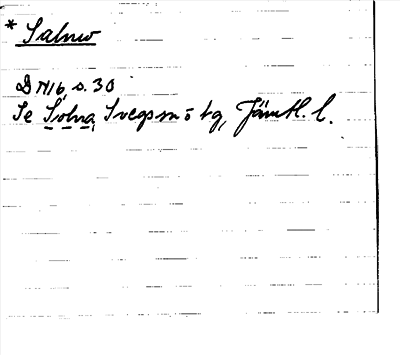 * Salnw
DN16, s. 30
Se Solna, Svegs m ō tg, Jämtl. l.